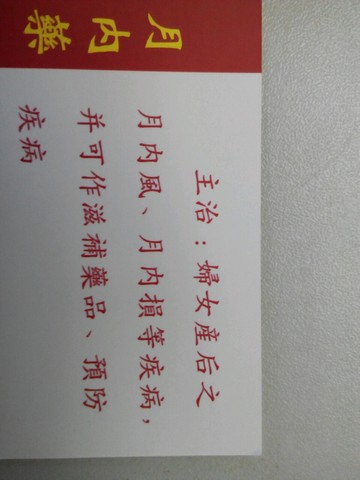 月内藥
主治：婦女産后之
月内風、月内損等疾病，
并可作滋補藥品、預防
疾病